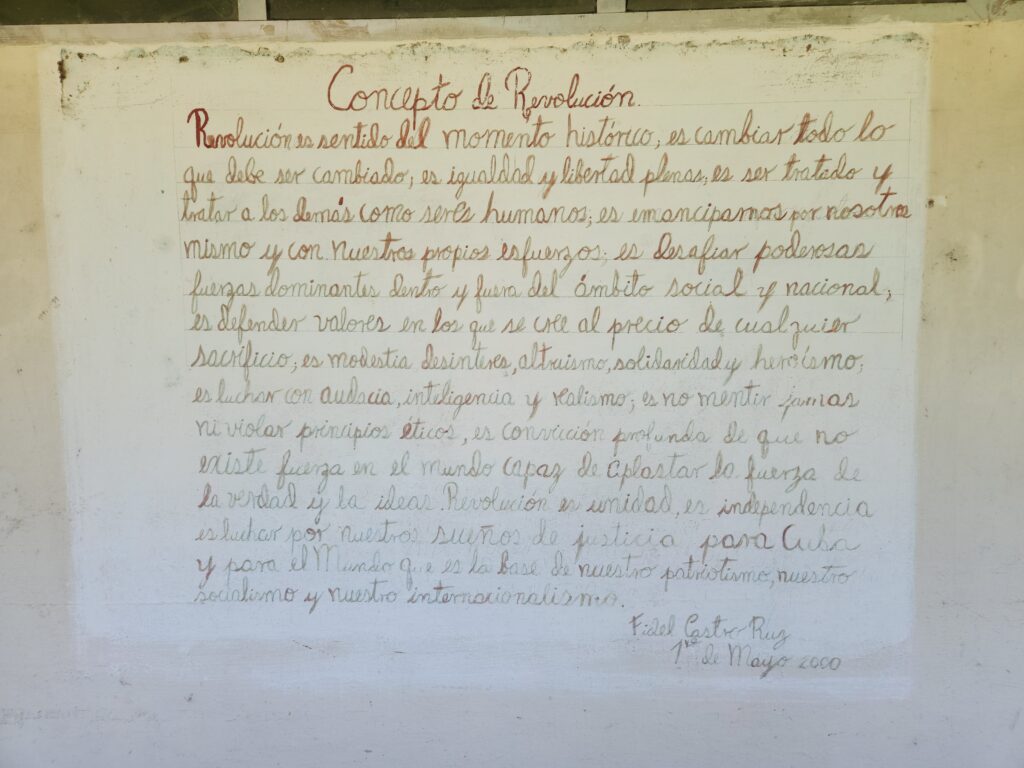 Concepto de Revolución.
Revolución es sentido del momento histórico, es cambiar todo lo
que debe ser cambiado, es igualdad y libertad plenas, es ser tratado y
tratar a los demás como seres humanos; es emanciparnos por nosotros
mismo y con nuestros propios esfuerzos; es desafiar poderosas
fuerzas dominantes dentro y fuera del ámbito social y nacional,
es defender valores en los que se cree al precio de cualquier
sacrificio; es modestia desinteres, altruismo, solidaridad y heroísmo;
es luchar con audacia, inteligencia y realismo; es no mentir jamas
ni violar principios éticos, es convicción profunda de que no
existe fuerza en el mundo capaz de aplastar la fuerza de
la verdad y la ideas. Revolución es unidad, es independencia
es luchar por nuestros sueños de justicia para Cuba
y para el Mundo que es la base de nuestro patriotismo, nuestro
socialismo y nuestro internacionalismo.
Fidel Castro Ruz
1ro de Mayo 2000